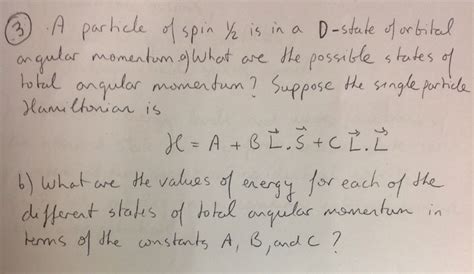 ③ . A particle of spin 1/2 is in a D-state of orbital
angular momentum. a) What are the possible states of
total angular momentum? Suppose the single particle
Hamiltonian is
H = A + B L⃗.S⃗ + C L⃗.L⃗
b) What are the values of energy for each of the
different states of total angular momentum in
terms of the constants A, B, and C ?